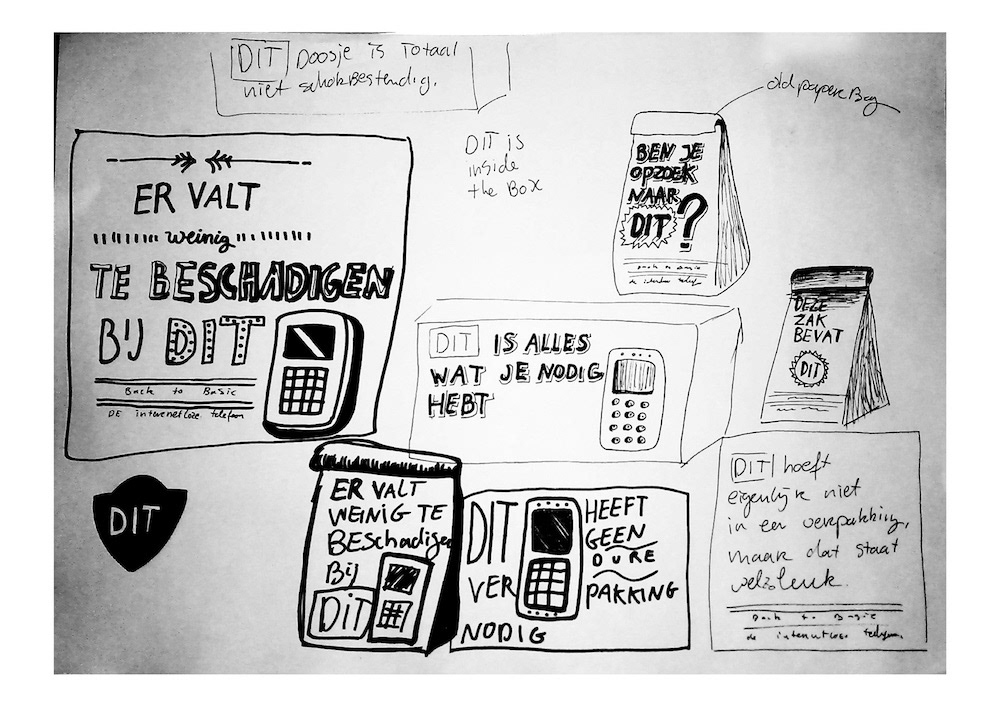 DIT Doosje is Totaal
niet schokBestendig.
old paper Bag
DIT is
inside
the Box
BEN JE
OPZOEK
NAAR
DIT ?
Back to Basic
de internetloze telefoon
ER VALT
weinig
TE BESCHADIGEN
BIJ DIT
Back to Basic
DE internetloze telefoon
DIT IS ALLES
WAT JE NODIG
HEBT
DEZE
ZAK
BEVAT
DIT
DIT
ER VALT
WEINIG TE
BESchadigen
Bij
DiT
DIT HEEFT
GEEN
DURE
VER PAKKING
NODIG
DIT hoeft
eigenlijk niet
in een verpakking,
maar dat staat
Back to Basic
de internetloze telefoon